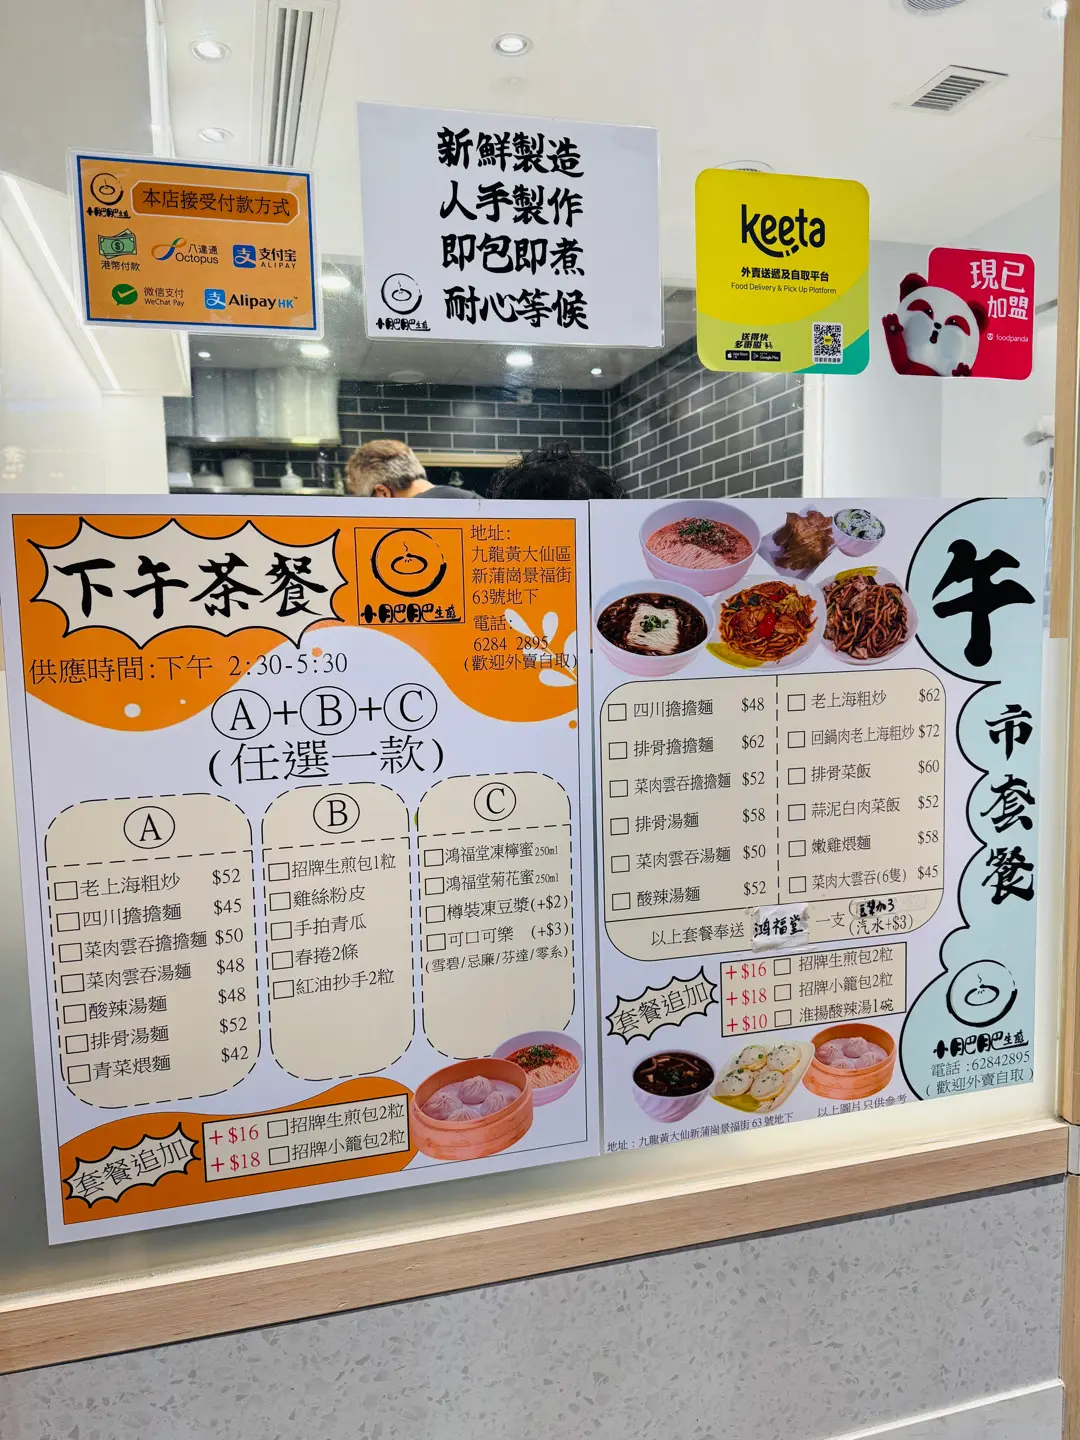 本店接受付款方式
小肥肥生煎
港幣付款
八達通
Octopus
支付宝
ALIPAY
微信支付
WeChat Pay
AlipayHK
新鮮製造
人手製作
即包即煮
耐心等候
小肥肥生煎
keeta
外賣送遞及自取平台
Food Delivery & Pick Up Platform
送得快
App Store
Google Play
現已
加盟
foodpanda
下午茶餐
小肥肥生煎
地址:
九龍黃大仙區
新蒲崗景福街
63號地下
電話:
6284 2895
(歡迎外賣自取)
供應時間:下午 2:30-5:30
A+B+C
(任選一款)
A
老上海粗炒 $52
四川擔擔麵 $45
菜肉雲吞擔擔麵 $50
菜肉雲吞湯麵 $48
酸辣湯麵 $48
排骨湯麵 $52
青菜煨麵 $42
B
招牌生煎包1粒
雞絲粉皮
手拍青瓜
春捲2條
紅油抄手2粒
C
鴻福堂凍檸蜜250ml
鴻福堂菊花蜜250ml
樽裝凍豆漿(+$2)
可口可樂 (+$3)
(雪碧/忌廉/芬達/零系)
套餐追加
+$16 招牌生煎包2粒
+$18 招牌小籠包2粒
午市套餐
四川擔擔麵 $48
排骨擔擔麵 $62
菜肉雲吞擔擔麵 $52
排骨湯麵 $58
菜肉雲吞湯麵 $50
酸辣湯麵 $52
老上海粗炒 $62
回鍋肉老上海粗炒 $72
排骨菜飯 $60
蒜泥白肉菜飯 $52
嫩雞煨麵 $58
菜肉大雲吞(6隻) $45
以上套餐奉送 鴻福堂 一支
(汽水+$3)
套餐追加
+$16 招牌生煎包2粒
+$18 招牌小籠包2粒
+$10 淮揚酸辣湯1碗
小肥肥生煎
電話:62842895
(歡迎外賣自取)
以上圖片只供參考
地址:九龍黃大仙新蒲崗景福街 63 號地下